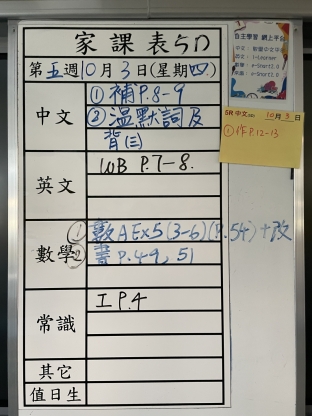 家課表5D
第五週 10月3日(星期四.)
中文
①補P.8-9
②溫默詞及
背(三)
英文
WB P.7-8.
數學
①數AEx5(3-6)(P.54)+改
②書P.49, 51
常識
工P.4
其它
值日生
自主學習 網上平台
5R 中文 10月3日
①作P.12-13